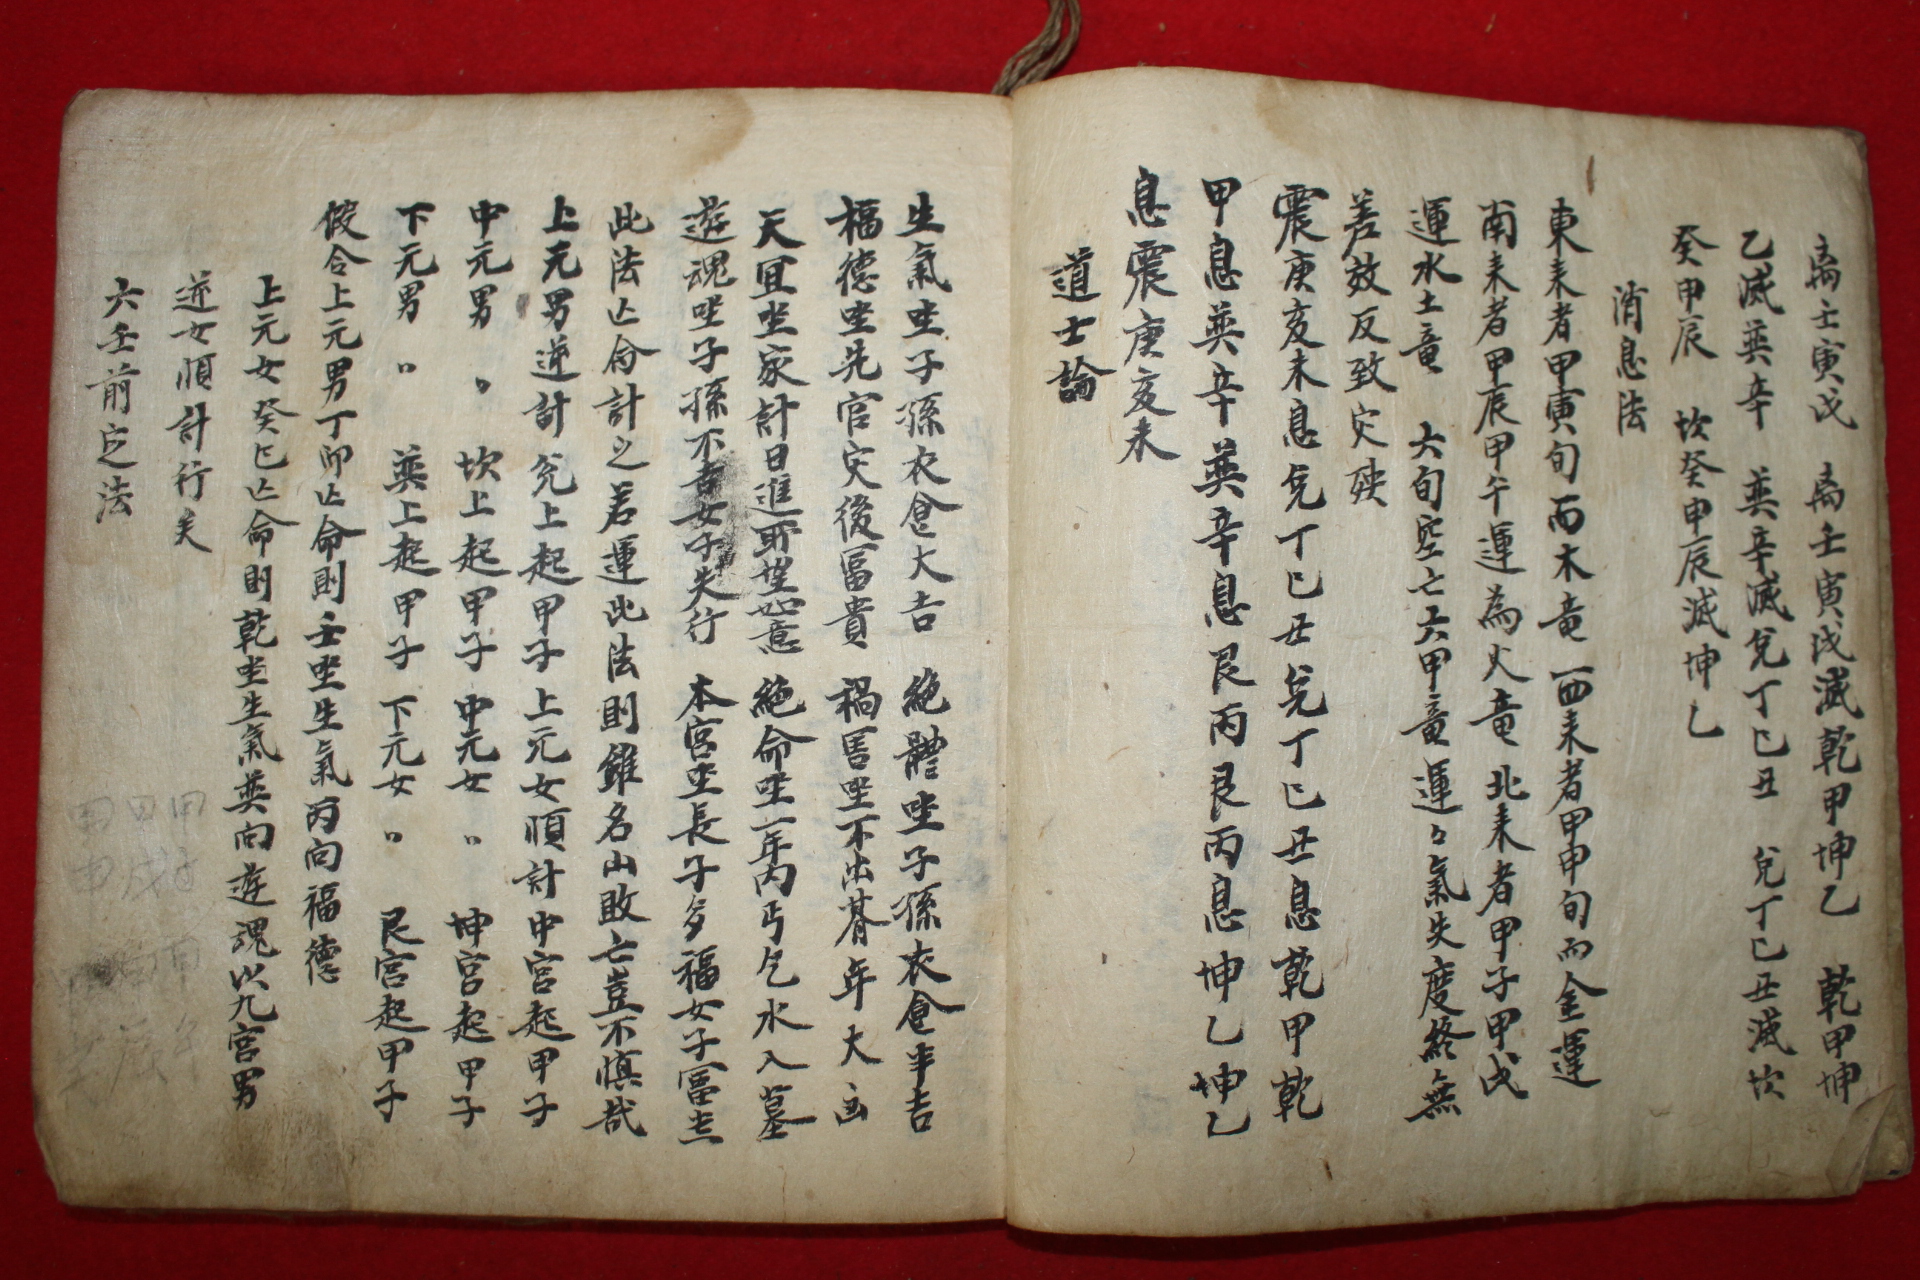 离壬寅戌 离壬寅戌滅乾甲坤乙 乾甲坤
乙滅巽辛 巽辛滅兌丁巳丑 兌丁巳丑滅坎
癸申辰 坎癸申辰滅坤乙
消息法
東来者甲寅旬而木竜 西来者甲申旬而金運
南来者甲辰甲午運為火竜 北来者甲子甲戌
運水土竜 六旬空亡六甲竜運々氣失度終無
差效反致灾殃
震庚亥未息兌丁巳丑兌丁巳丑息乾甲乾
甲息巽辛巽辛息艮丙艮丙息坤乙坤乙
息震庚亥未
道士論
生氣坐子孫衣食大吉 絶體坐子孫衣食半吉
福德坐先官灾後冨貴 禍害坐不出朞年大凶
天宜坐家計日進所望如意 絶命坐一年內丐乞水入墓
遊魂坐子孫不吉女子失行 本宮坐長子多福女子冨吉
此法亡命計之若運此法則雖名山敗亡豈不愼哉
上元男逆計 兌上起甲子 上元女順計中宮起甲子
中元男〃 坎上起甲子 中元女〃 坤宮起甲子
下元男〃 巽上起甲子 下元女〃 艮宮起甲子
假令上元男丁卯亡命則壬坐生氣丙向福德
上元女癸巳亡命則乾坐生氣巽向遊魂以九宮男
逆女順計行矣
六壬前定法